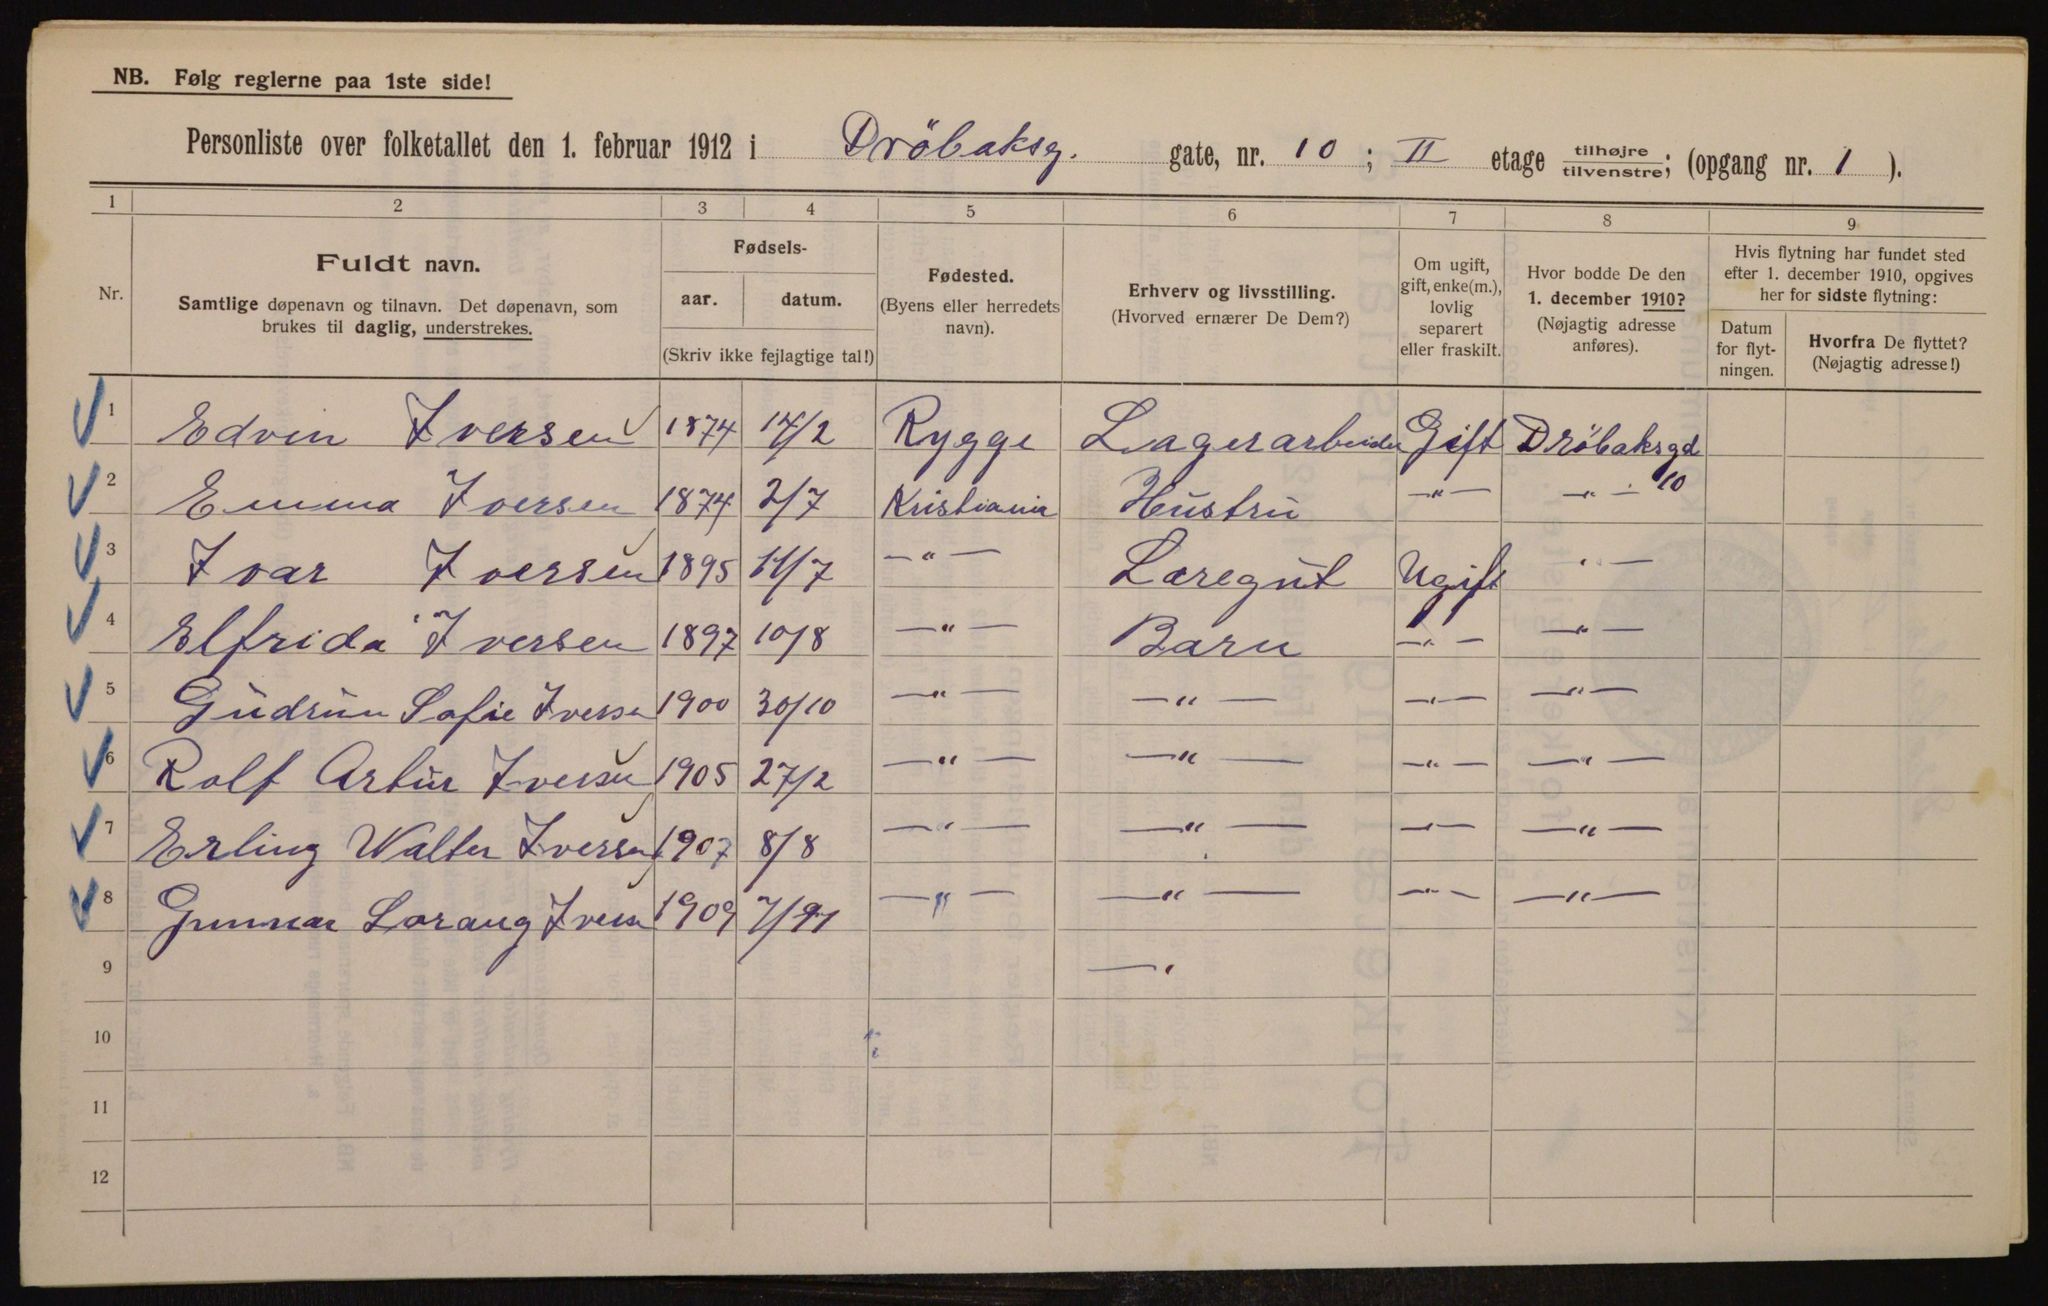 NB. Følg reglerne paa 1ste side!
Personliste over folketallet den 1. februar 1912 i Dröbaksg. gate, nr. 10 ; II etage tilhøjre/tilvenstre; (opgang nr. 1 ).
1 2 3 4 5 6 7 8 9
Nr.
Fuldt navn.
Samtlige døpenavn og tilnavn. Det døpenavn, som
brukes til daglig, understrekes.
Fødsels-
aar. datum.
(Skriv ikke fejlagtige tal!)
Fødested.
(Byens eller herredets
navn).
Erhverv og livsstilling.
(Hvorved ernærer De Dem?)
Om ugift,
gift, enke(m.),
lovlig
separert
eller fraskilt.
Hvor bodde De den
1. december 1910?
(Nøjagtig adresse
anføres).
Hvis flytning har fundet sted
efter 1. december 1910, opgives
her for sidste flytning:
Datum
for flyt-
ningen.
Hvorfra De flyttet?
(Nøjagtig adresse!)
1 Edvin Iversen 1874 14/2 Rygge Lagerarbeider Gift Dröbaksgd 10
2 Emma Iversen 1874 2/7 Kristiania Hustru —"— —"—
3 Ivar Iversen 1895 11/7 —"— Læregut Ugift "—
4 Elfrida Iversen 1897 10/8 —"— Barn —"— —"—
5 Gudrun Sofie Iversen 1900 30/10 —"— —"— —"— —"—
6 Rolf Artur Iversen 1905 27/2 —"— —"— —"— —"—
7 Erling Walter Iversen 1907 8/8 —"— —"— —"— —"—
8 Gunnar Lorang Iversen 1909 —"— —"— —"— —"—
9 —"
10
11
12